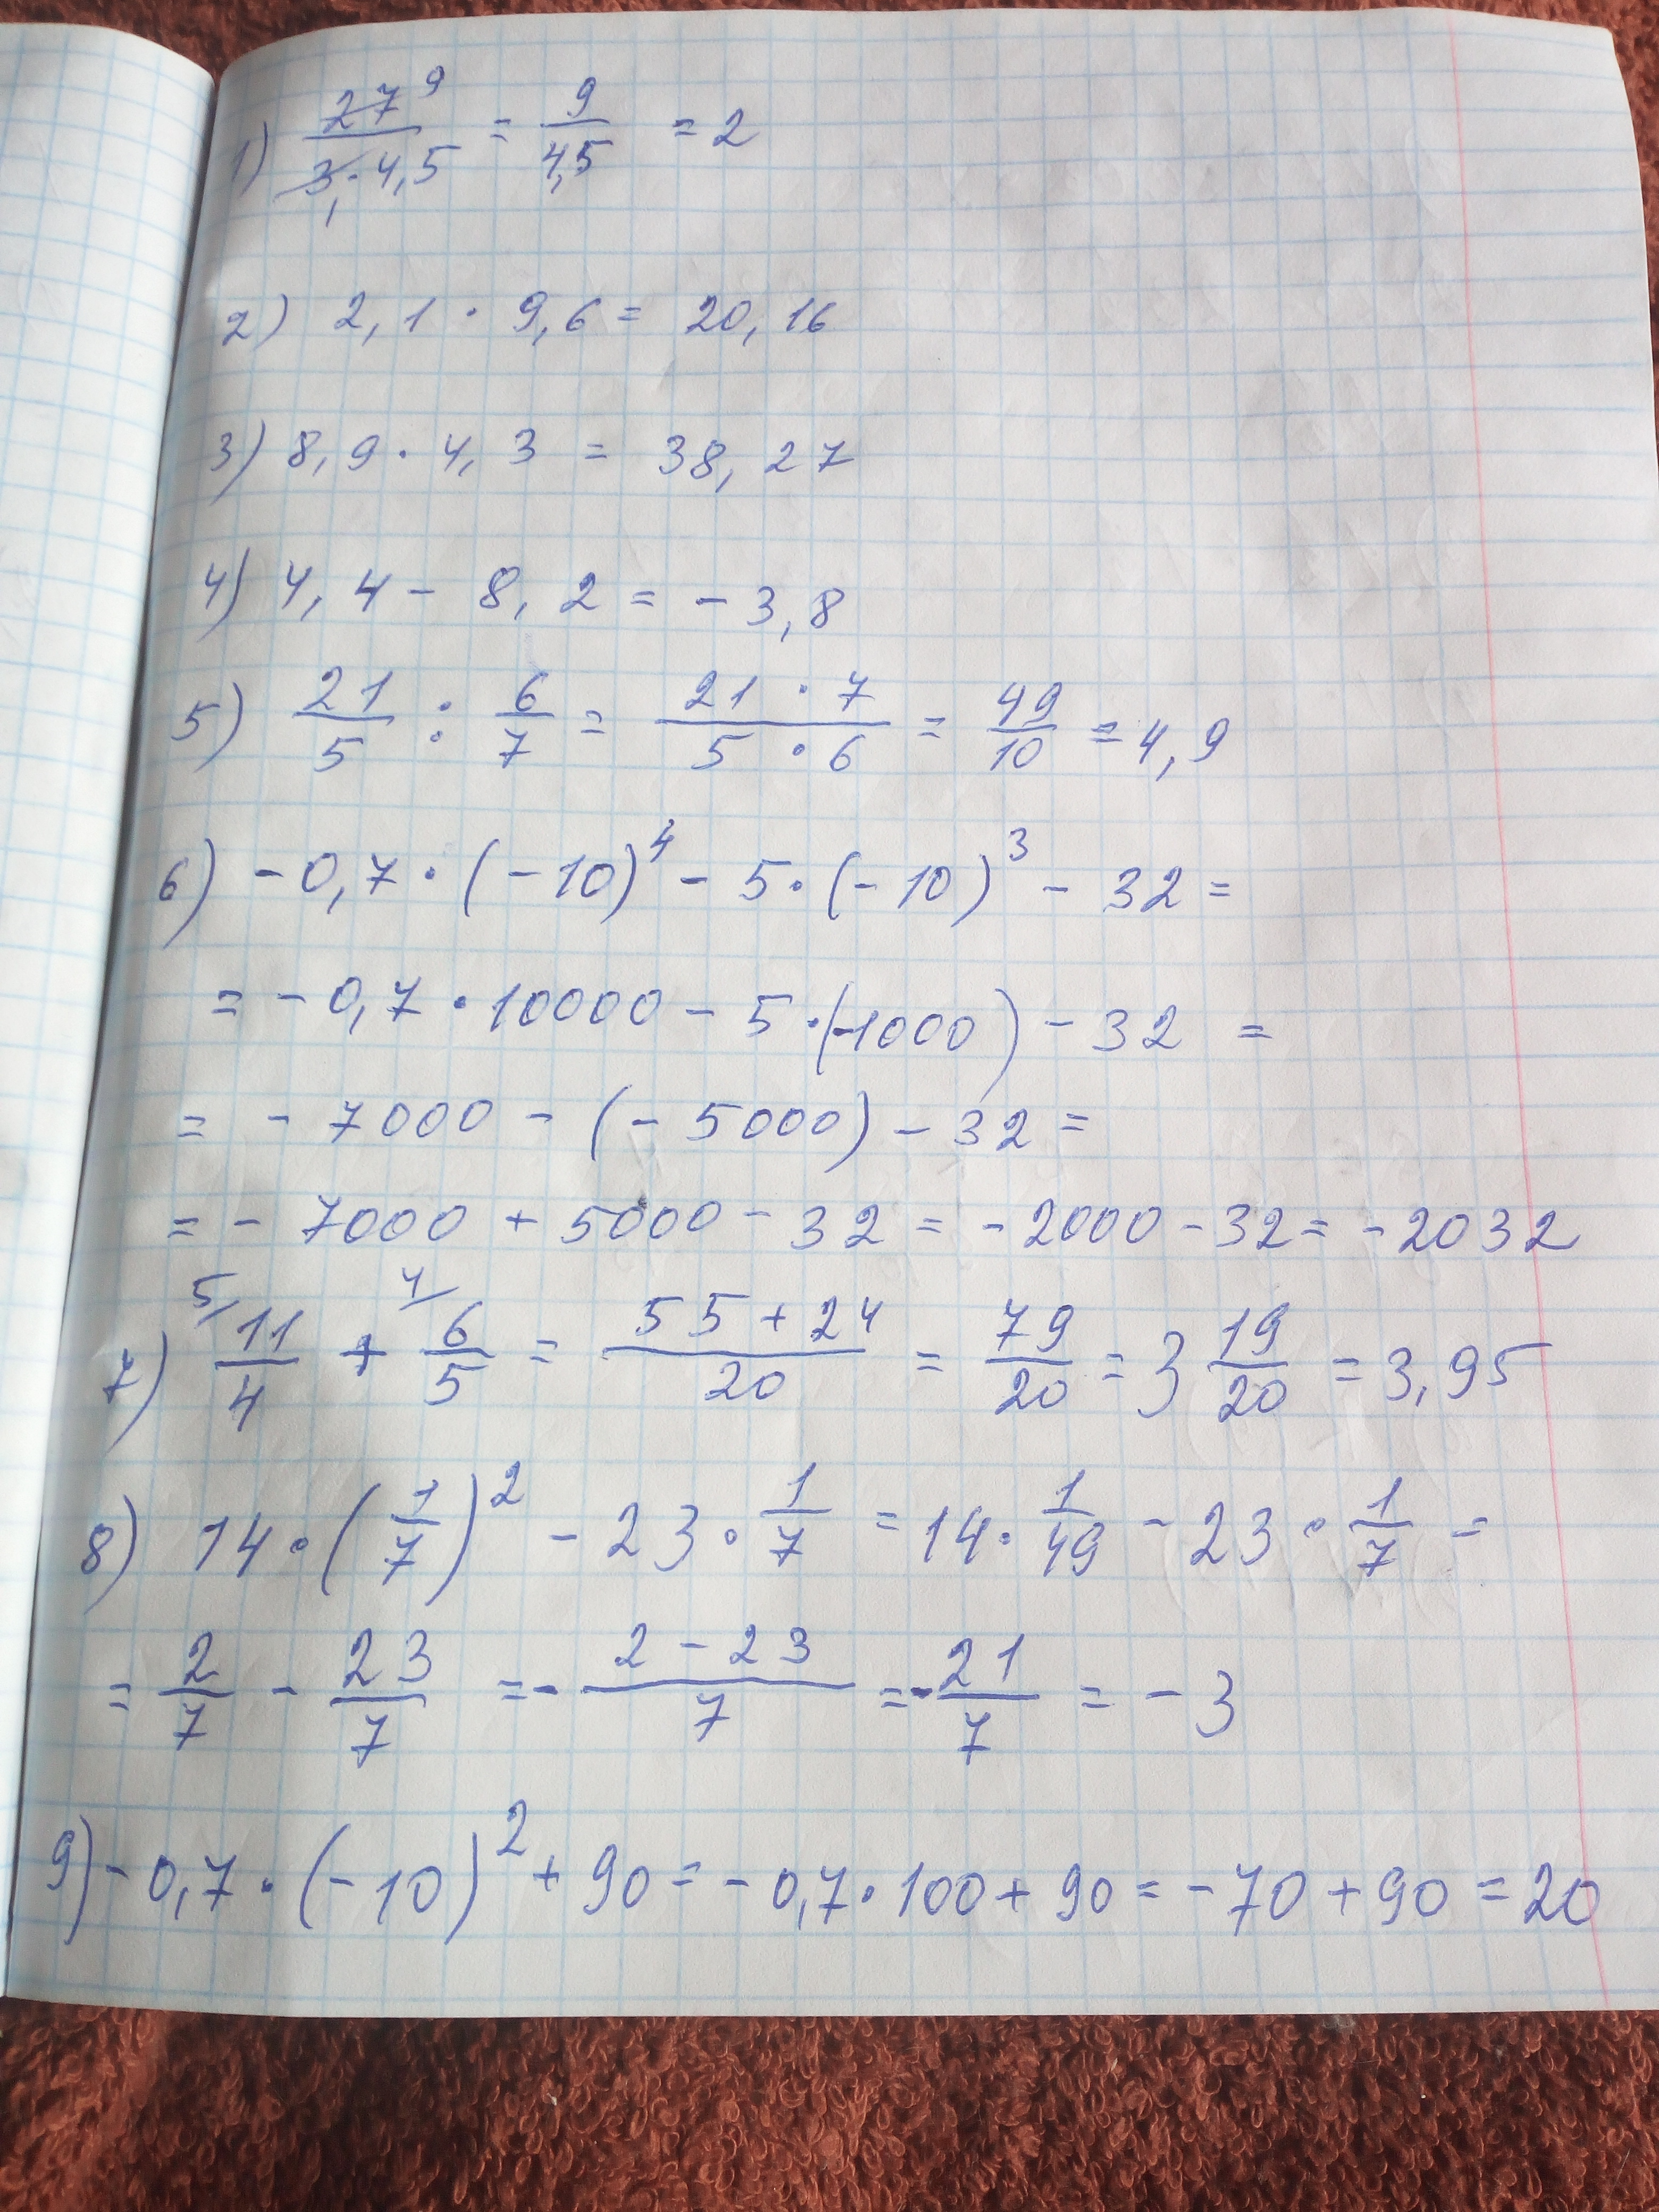 1) 27⁹/(3₁ · 4,5) = 9/4,5 = 2
2) 2,1 · 9,6 = 20,16
3) 8,9 · 4,3 = 38,27
4) 4,4 - 8,2 = - 3,8
5) 21/5 : 6/7 = (21 · 7)/(5 · 6) = 49/10 = 4,9
6) - 0,7 · (- 10)⁴ - 5 · (- 10)³ - 32 =
= - 0,7 · 10000 - 5 · (-1000) - 32 =
= - 7000 - (- 5000) - 32 =
= - 7000 + 5000 - 32 = - 2000 - 32 = - 2032
7) ⁵⁄ 11/4 + ⁴⁄ 6/5 = (55 + 24)/20 = 79/20 = 3 19/20 = 3,95
8) 14 · (1/7)² - 23 · 1/7 = 14 · 1/49 - 23 · 1/7 =
= 2/7 - 23/7 = - (2 - 23)/7 = - 21/7 = - 3
9) - 0,7 · (- 10)² + 90 = - 0,7 · 100 + 90 = - 70 + 90 = 20